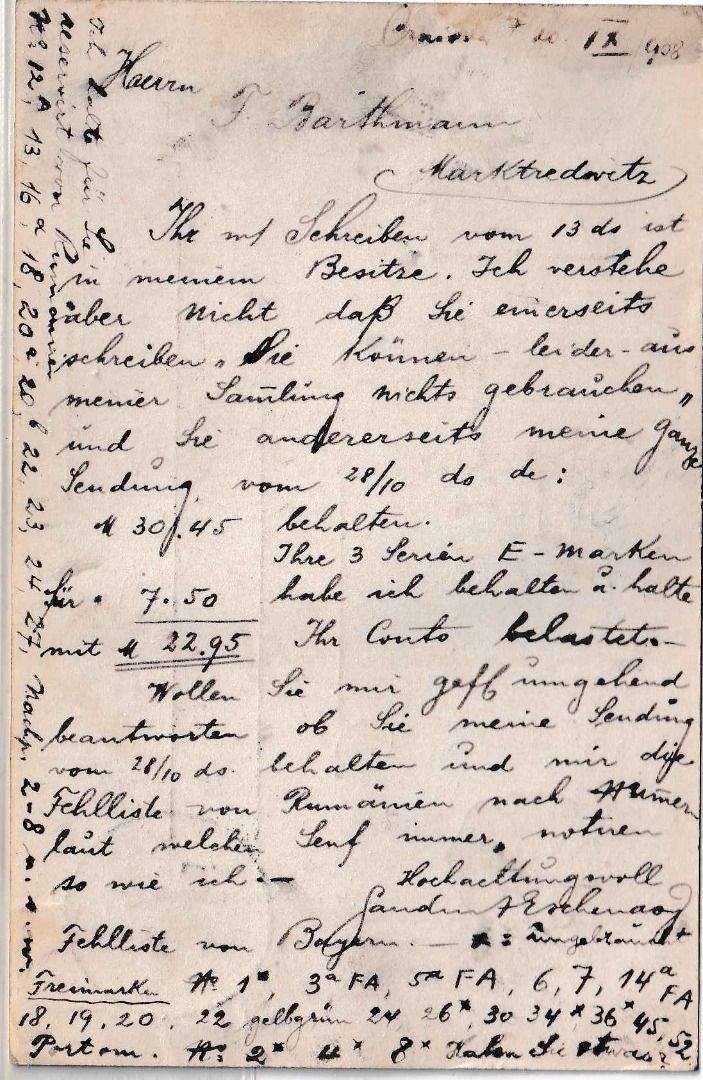 IX 908
Herrn
F. Barthmann
Marktredwitz
Ihr w/ Schreiben vom 13 ds ist
in meinem Besitze. Ich verstehe
aber nicht daß Sie einerseits
schreiben „ Sie können – leider – aus
meiner Samlung nichts gebrauchen "
und Sie andererseits meine ganze
Sendung vom 28/10 ds de:
M 30.45 behalten.
Ihre 3 Serien E-Marken
für " 7.50 habe ich behalten u. halte
mit M 22.95 Ihr Conto belastet.–
Wollen Sie mir gefl umgehend
beantworten ob Sie meine Sendung
vom 28/10 ds. behalten und mir die
Fehlliste von Rumänien nach Numern
laut welchen Senf immer, notiren
so wie ich.–
Hochachtungsvoll
Fehlliste von Bayern. — * = ungebraucht
Freimarken No 1*, 3a FA, 5a FA, 6, 7, 14a FA
18, 19, 20, 22 gelbgrün 24 26*, 30 34* 36* 45, 52
Portom. No: 2* 4* 8* Haben Sie etwas?
Ich halte für Sie
reservirt von Rumänien
No 12A, 13, 16a, 18, 20a 20b 22, 23, 24, 27, Nachp. 2-8 u. s. w.